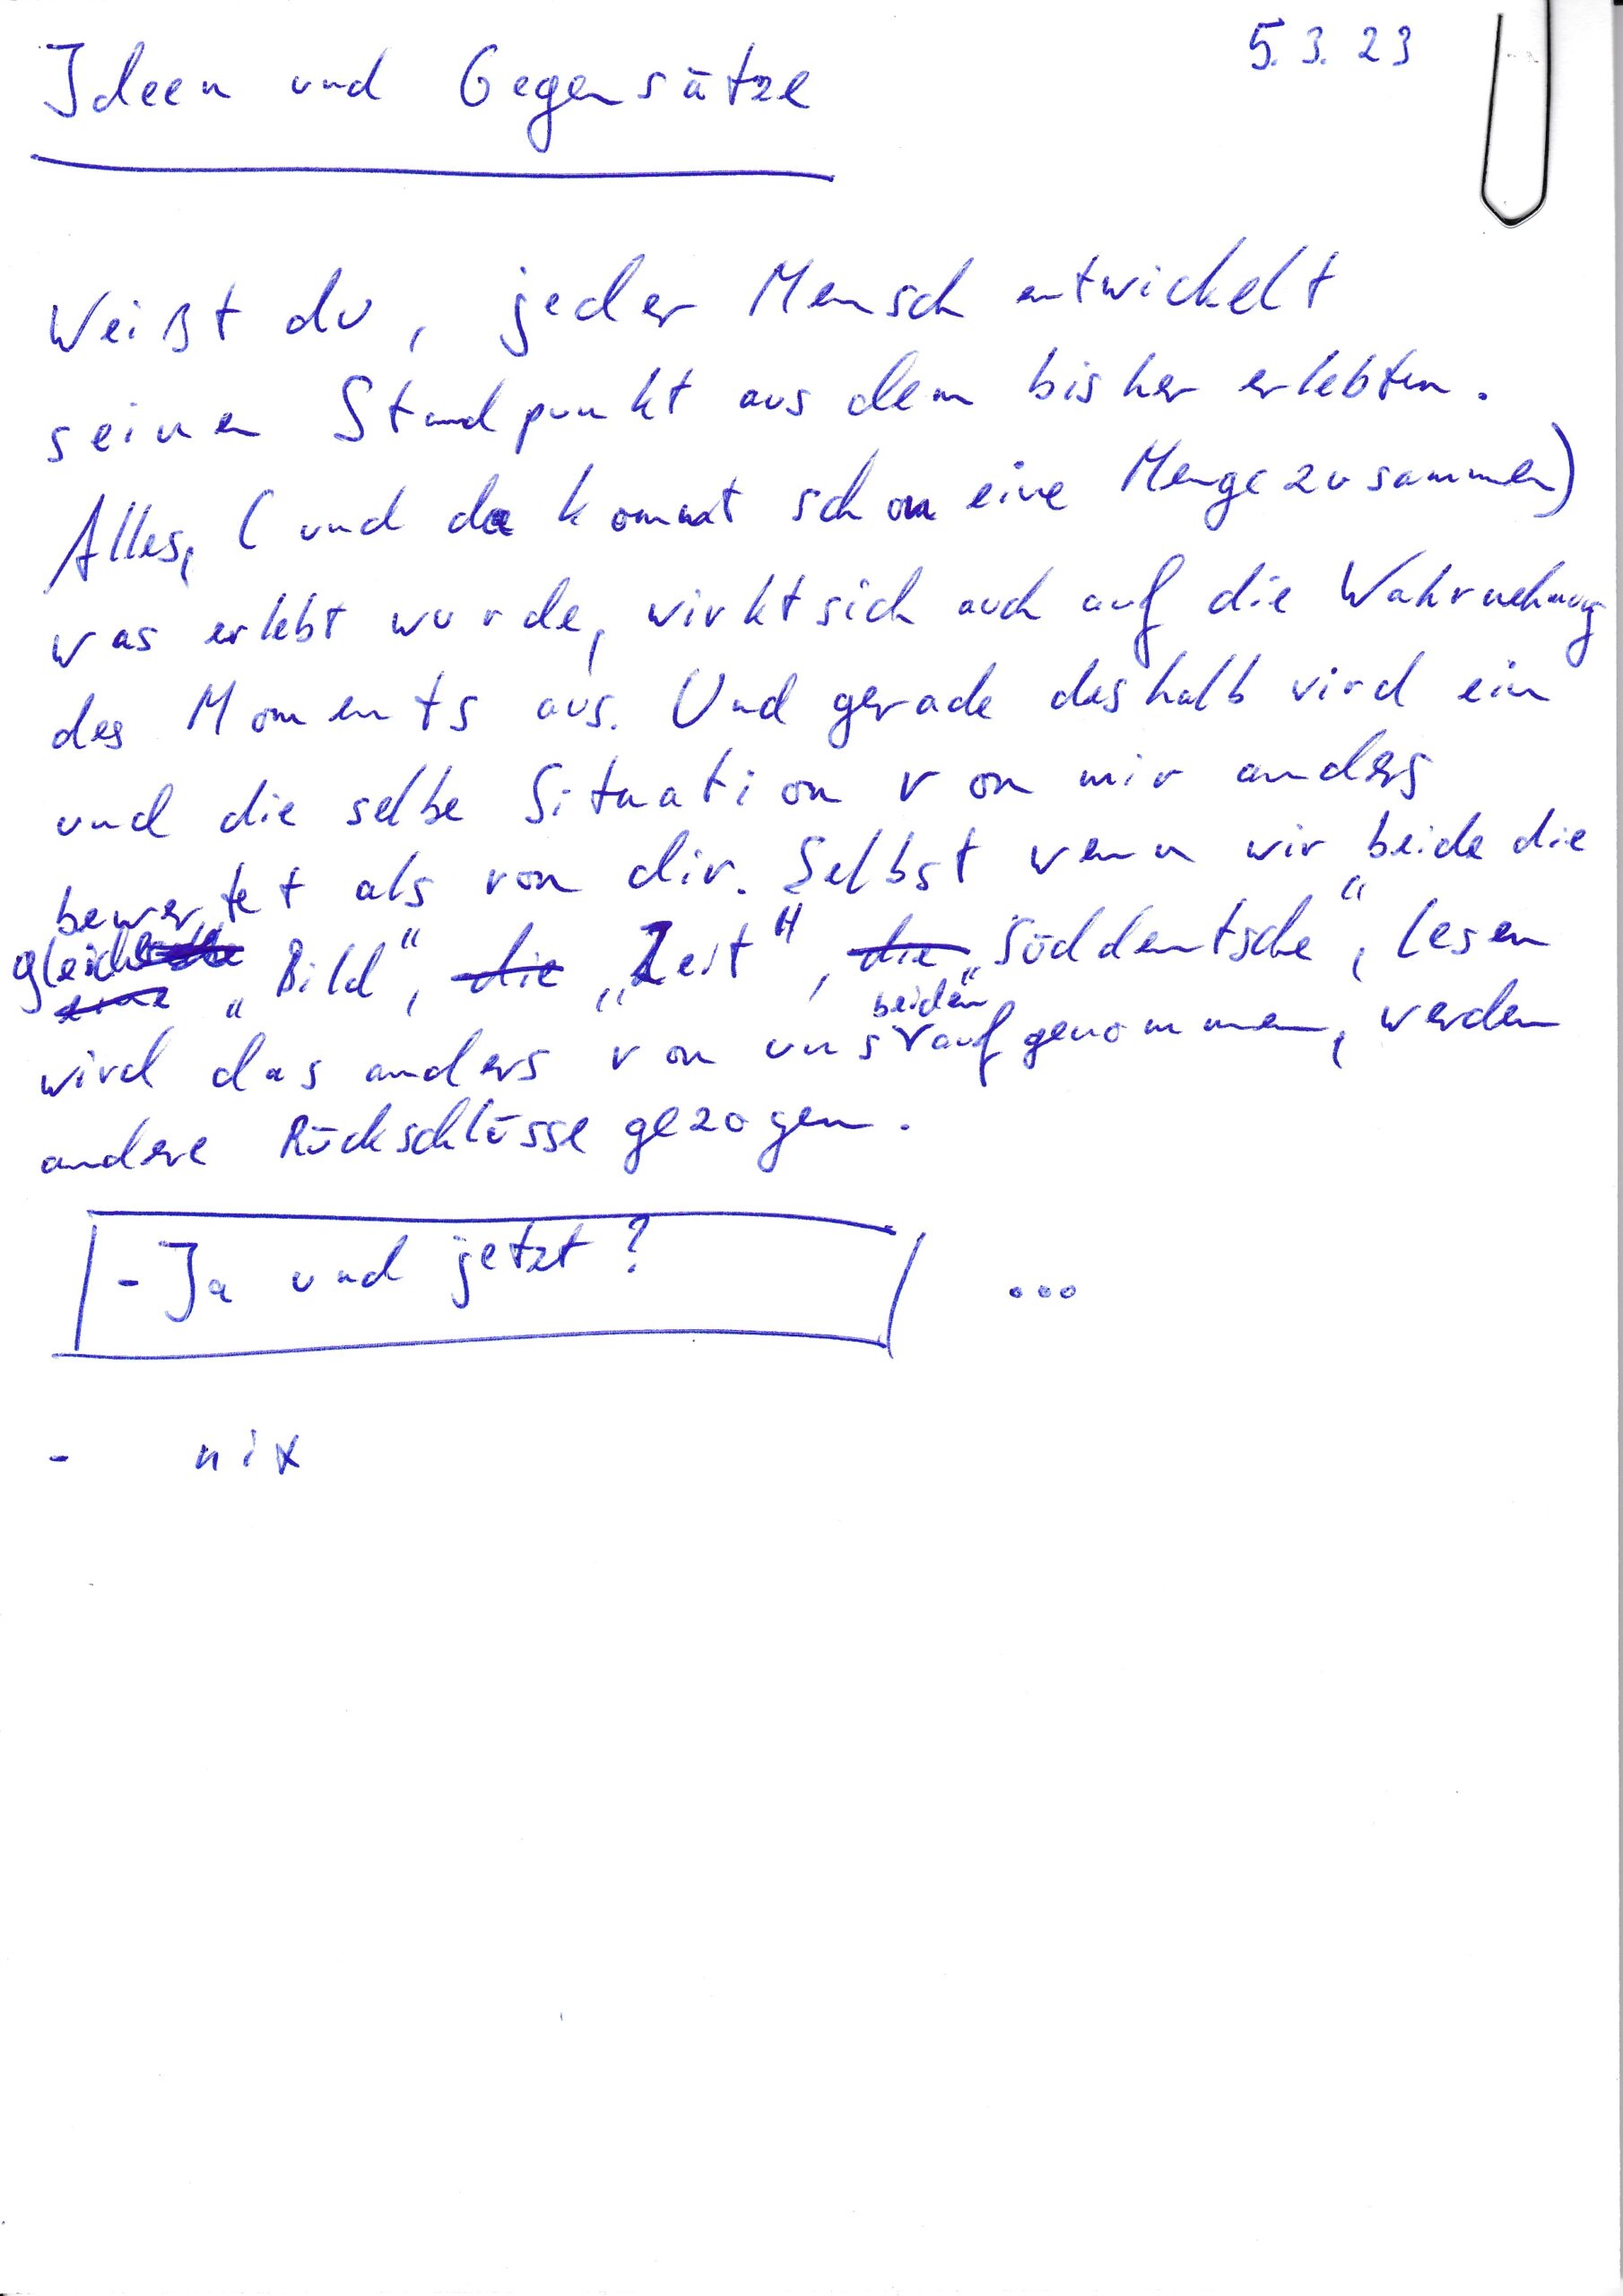 5.3.23
Ideen und Gegensätze
Weißt du, jeder Mensch entwickelt
seinen Standpunkt aus dem bisher erlebten.
Alles, (und da kommt schon eine Menge zusammen)
was erlebt wurde, wirkt sich auch auf die Wahrnehmung
des Moments aus. Und gerade deshalb wird ein
und die selbe Situation von mir anders
bewertet als von dir. Selbst wenn wir beide die
gleiche eine „Bild“, die „Zeit“, die „Süddeutsche“, lesen
beiden
wird das anders von uns aufgenommen, werden
andere Rückschlüsse gezogen.
- Ja und jetzt? ...
- nix